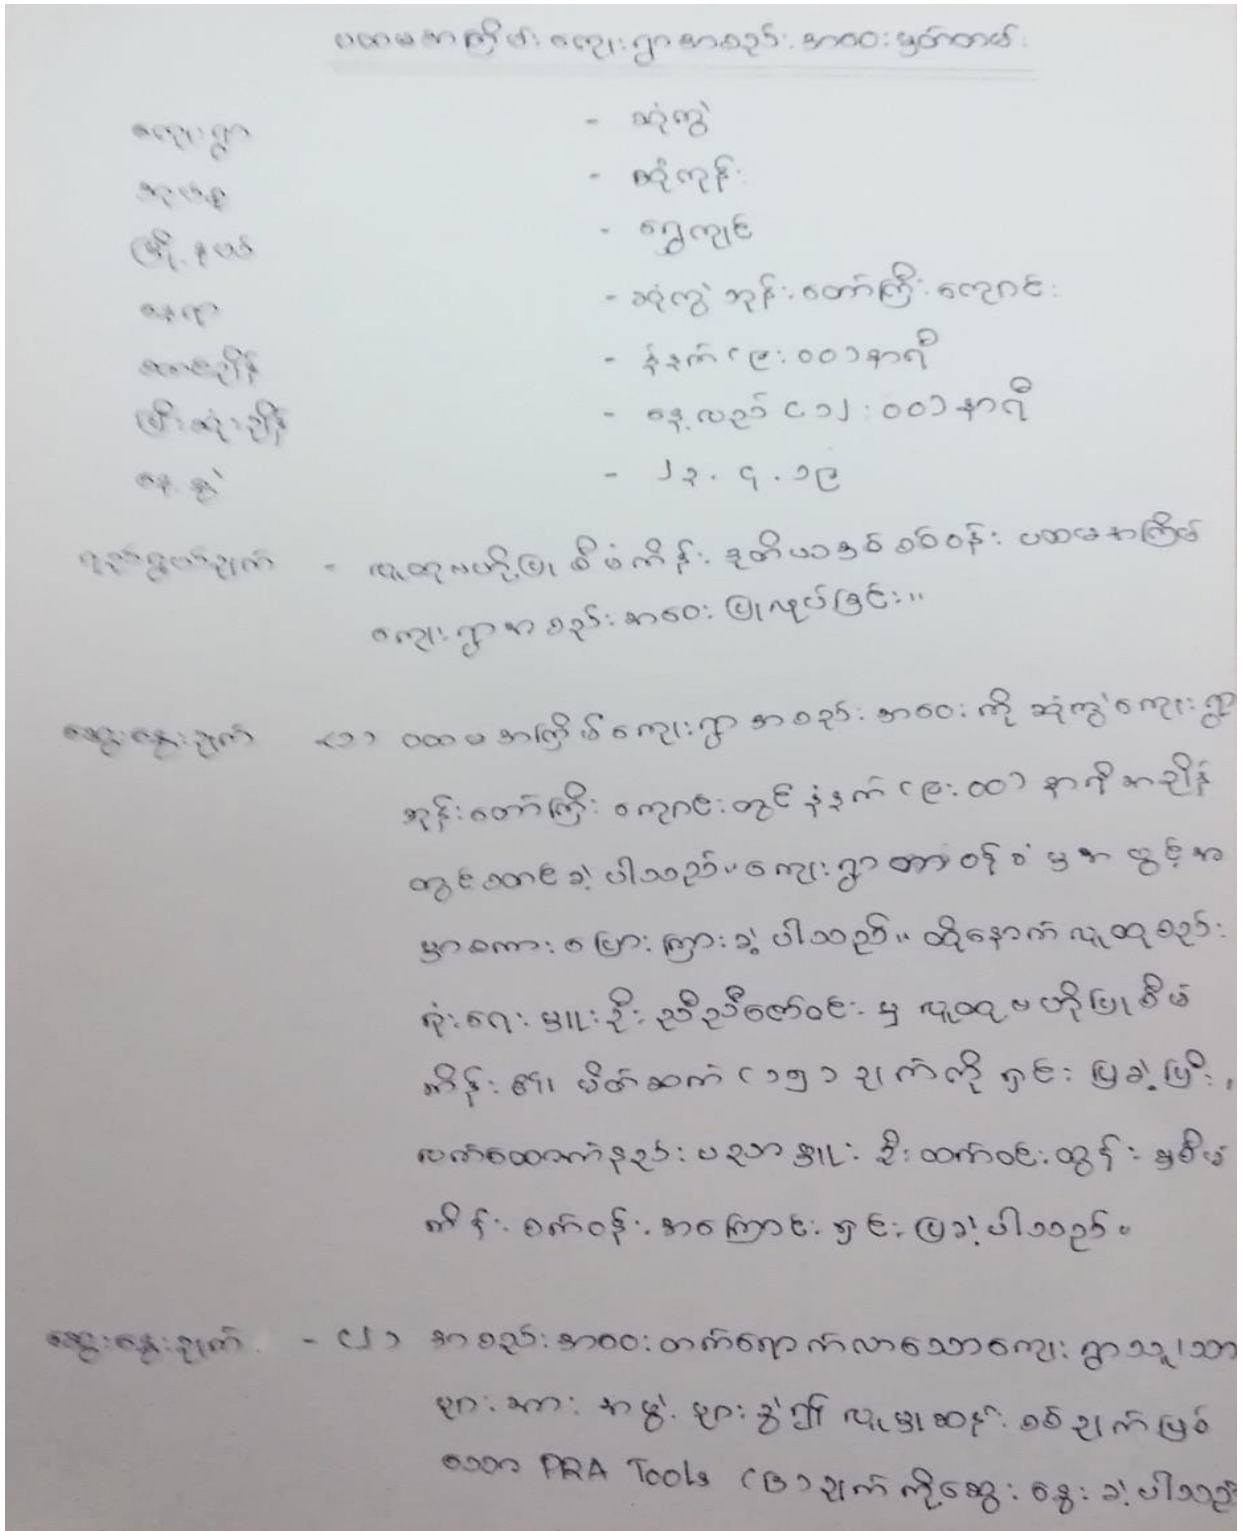 ပထမအကြိမ် ကျေးရွာအစည်းအဝေးမှတ်တမ်း
ကျေးရွာ - ဆုံကွဲ
အုပ်စု - ဆုံကုန်း
မြို့နယ် - ရွှေကျင်
နေရာ - ဆုံကွဲ ဘုန်းတော်ကြီးကျောင်း
စတင်ချိန် - နံနက် (၉:၀၀) နာရီ
ပြီးဆုံးချိန် - နေ့လည် (၁၂:၀၀) နာရီ
နေ့စွဲ - ၂၃.၄.၁၉
ရည်ရွယ်ချက် - လူထုဗဟိုပြု စီမံကိန်း ဒုတိယနှစ် စက်ဝန်း ပထမအကြိမ်
ကျေးရွာအစည်းအဝေး ပြုလုပ်ခြင်း။
ဆွေးနွေးချက် (၁) ပထမအကြိမ်ကျေးရွာအစည်းအဝေးကို ဆုံကွဲကျေးရွာ
ဘုန်းတော်ကြီးကျောင်းတွင် နံနက် (၉:၀၀) နာရီအချိန်
တွင်စတင်ခဲ့ပါသည်။ ကျေးရွာတာဝန်ခံမှ အဖွင့်အ
မှာစကားပြောကြားခဲ့ပါသည်။ ထို့နောက် လူထုစည်း
ရုံးရေးမှူး ဦးညီညီဇော်ဝင်းမှ လူထုဗဟိုပြုစီမံ
ကိန်း၏ မိတ်ဆက် (၁၅) ချက်ကို ရှင်းပြခဲ့ပြီး၊
လက်ထောက်နည်းပညာမှူး ဦးထက်ဝင်းထွန်းမှစီမံ
ကိန်းစက်ဝန်းအကြောင်းရှင်းပြခဲ့ပါသည်။
ဆွေးနွေးချက် - (၂) အစည်းအဝေးတက်ရောက်လာသောကျေးရွာသူ/သား
များအား အဖွဲ့များခွဲ၍ လူမှုဆန်းစစ်ချက်ဖြစ်
သော PRA Tools (၆) ချက်ကိုဆွေးနွေးခဲ့ပါသည်